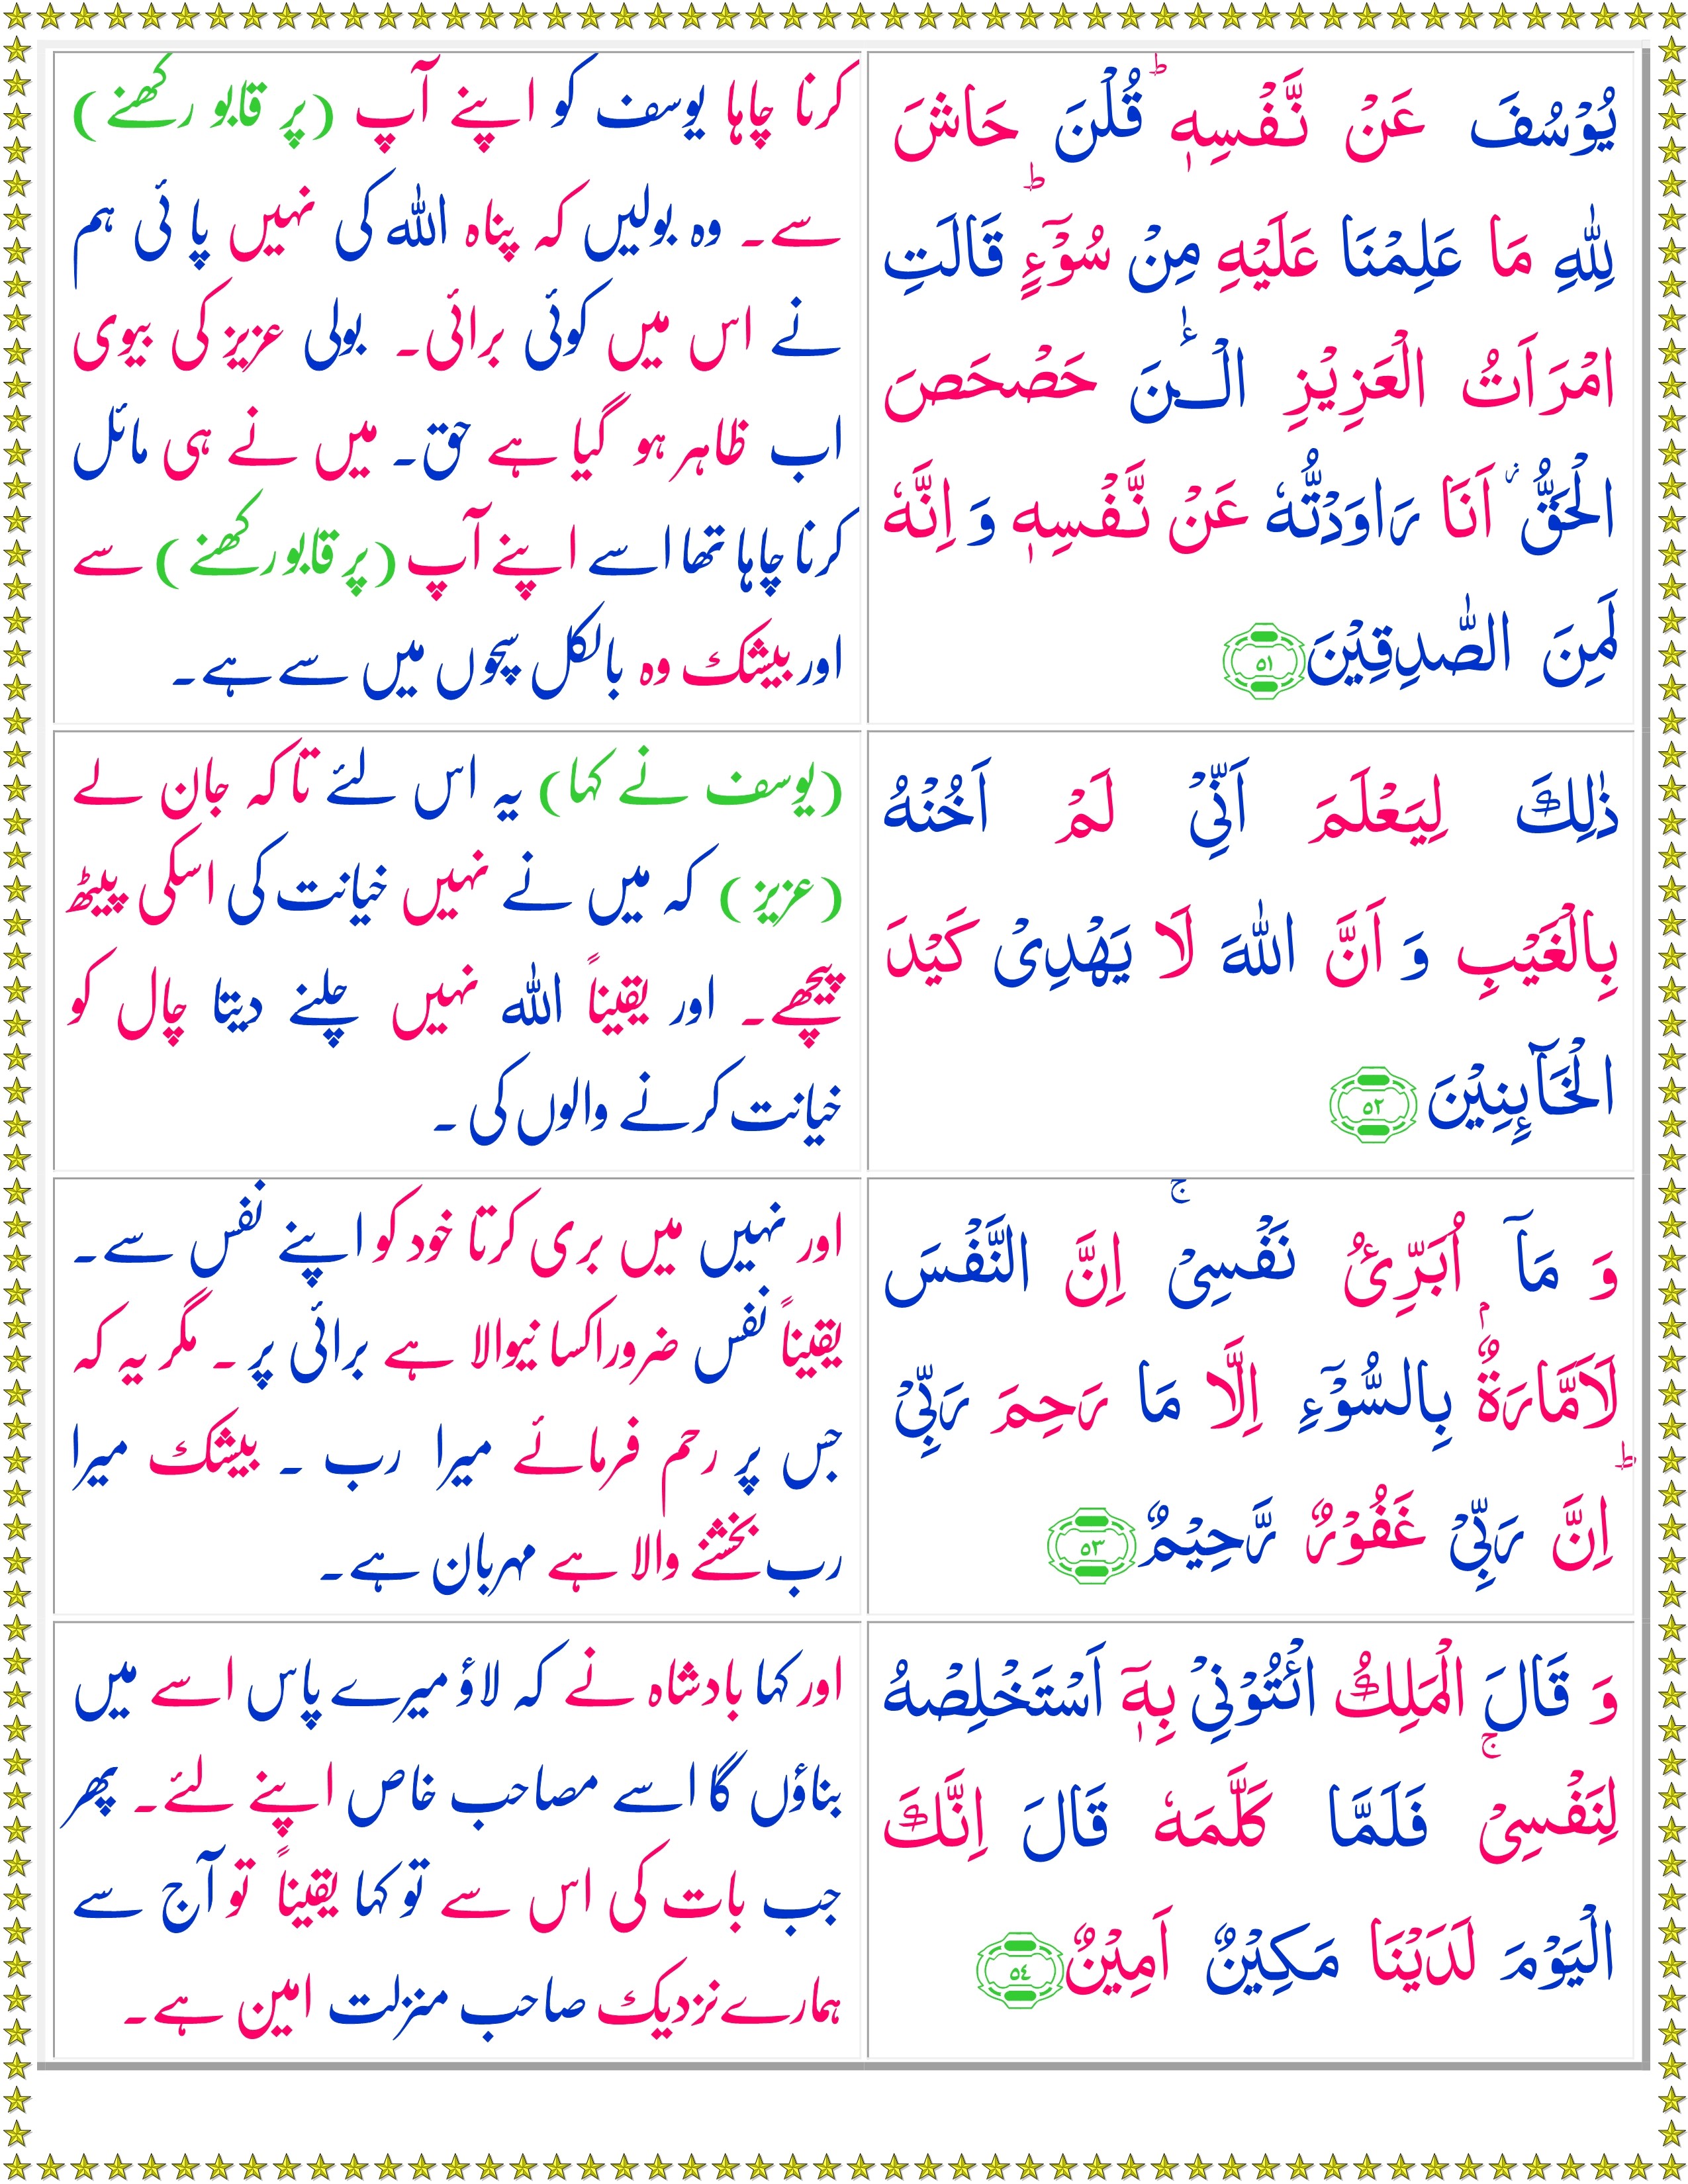 یُوۡسُفَ عَنۡ نَّفۡسِہٖ ؕ قُلۡنَ حَاشَ
لِلّٰہِ مَا عَلِمۡنَا عَلَیۡہِ مِنۡ سُوۡٓءٍ ؕ قَالَتِ
امۡرَاَتُ الۡعَزِیۡزِ الۡـٰٔنَ حَصۡحَصَ
الۡحَقُّ ۫ اَنَا رَاوَدۡتُّہٗ عَنۡ نَّفۡسِہٖ وَ اِنَّہٗ
لَمِنَ الصّٰدِقِیۡنَ ﴿۵۱﴾
کرنا چاہا یوسف کو اپنے آپ (پر قابو رکھنے)
سے۔ وہ بولیں کہ پناہ اللہ کی نہیں پائی ہم
نے اس میں کوئی برائی۔ بولی عزیز کی بیوی
اب ظاہر ہو گیا ہے حق۔ میں نے ہی مائل
کرنا چاہا تھا اسے اپنے آپ (پر قابو رکھنے) سے
اور بیشک وہ بالکل سچوں میں سے ہے۔
ذٰلِکَ لِیَعۡلَمَ اَنِّیۡ لَمۡ اَخُنۡہُ
بِالۡغَیۡبِ وَ اَنَّ اللّٰہَ لَا یَہۡدِیۡ کَیۡدَ
الۡخَآئِنِیۡنَ ﴿۵۲﴾
(یوسف نے کہا) یہ اس لئے تاکہ جان لے
(عزیز) کہ میں نے نہیں خیانت کی اسکی پیٹھ
پیچھے۔ اور یقیناً اللہ نہیں چلنے دیتا چال کو
خیانت کرنے والوں کی۔
وَ مَاۤ اُبَرِّیُٔ نَفۡسِیۡ ۚ اِنَّ النَّفۡسَ
لَاَمَّارَۃٌۢ بِالسُّوۡٓءِ اِلَّا مَا رَحِمَ رَبِّیۡ ؕ
اِنَّ رَبِّیۡ غَفُوۡرٌ رَّحِیۡمٌ ﴿۵۳﴾
اور نہیں میں بری کرتا خود کو اپنے نفس سے۔
یقیناً نفس ضرور اکسانیوالا ہے برائی پر۔ مگر یہ کہ
جس پر رحم فرمائے میرا رب۔ بیشک میرا
رب بخشنے والا ہے مہربان ہے۔
وَ قَالَ الۡمَلِکُ ائۡتُوۡنِیۡ بِہٖۤ اَسۡتَخۡلِصۡہُ
لِنَفۡسِیۡ ۚ فَلَمَّا کَلَّمَہٗ قَالَ اِنَّکَ
الۡیَوۡمَ لَدَیۡنَا مَکِیۡنٌ اَمِیۡنٌ ﴿۵۴﴾
اور کہا بادشاہ نے کہ لاؤ میرے پاس اسے میں
بناؤں گا اسے مصاحب خاص اپنے لئے۔ پھر
جب بات کی اس سے تو کہا یقیناً تو آج سے
ہمارے نزدیک صاحب منزلت امین ہے۔